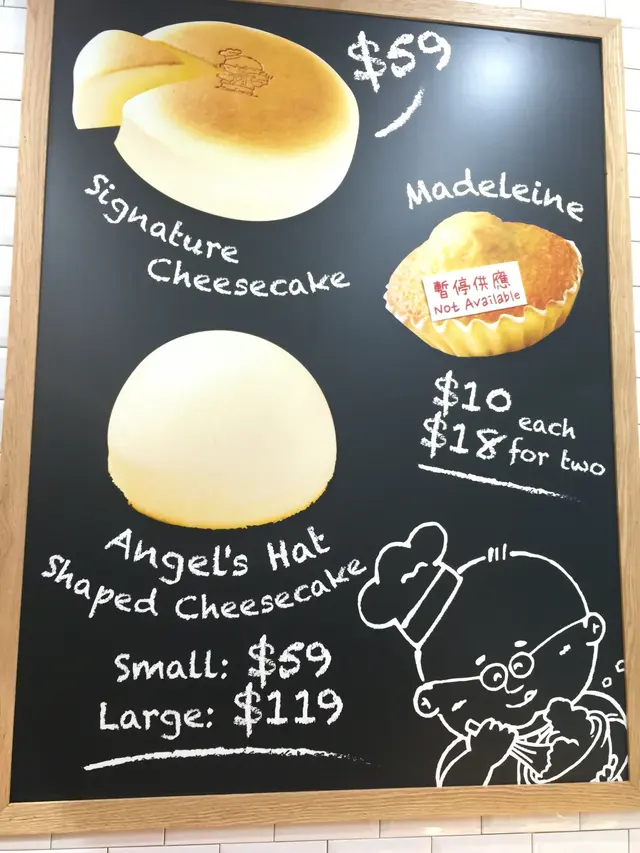 $59
Signature
Cheesecake
Madeleine
暫停供應
Not Available
$10
each
$18 for two
Angel's Hat
Shaped Cheesecake
Small: $59
Large: $119